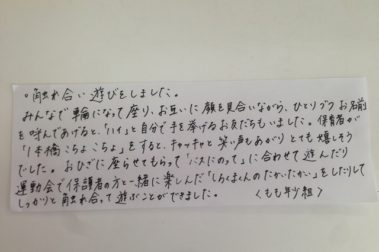 。触れ合い遊びをしました。
みんなで輪になって座り、お互いに顔を見合いながら、ひとりづつお名前
を呼んであげると、「ハイ」と自分で手を挙げるお友だちもいました。保育者が
「1本橋こちょこちょ」をすると、キャッキャと笑い声もあがりとても嬉しそう
でした。おひざに座らせてもらって「バスにのって」に合わせて遊んだり
運動会で保護者の方と一緒に楽しんだ「しろくまくんのたかいたかい」をしたりして
しっかりと触れ合って遊ぶことができました。 〈もも年少組〉